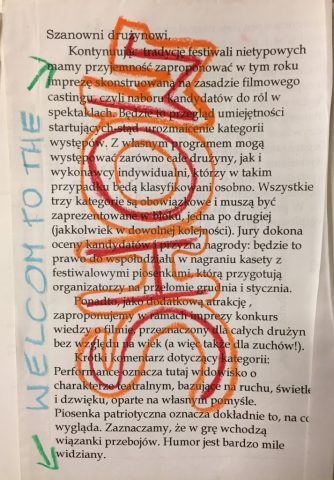 Szanowni drużynowi,
Kontynuując tradycję festiwali nietypowych
mamy przyjemność zaproponować w tym roku
imprezę skonstruowaną na zasadzie filmowego
castingu, czyli naboru kandydatów do ról w
spektaklach. Będzie to przegląd umiejętności
startujących, stąd urozmaicenie kategorii
występów. Z własnym programem mogą
występować zarówno całe drużyny, jak i
wykonawcy indywidualni, którzy w takim
przypadku będą klasyfikowani osobno. Wszystkie
trzy kategorie są obowiązkowe i muszą być
zaprezentowane w bloku, jedna po drugiej
(jakkolwiek w dowolnej kolejności). Jury dokona
oceny kandydatów i przyzna nagrody: będzie to
prawo do w nagraniu kasety z
festiwalowymi piosenkami, którą przygotują
organizatorzy na przełomie grudnia i stycznia.
Ponadto, jako dodatkową atrakcję,
zaproponujemy w ramach imprezy konkurs
wiedzy przeznaczony dla całych drużyn
bez względu na wiek (a więc i dla zuchów!).
Krótki komentarz dotyczący kategorii:
Performance oznacza tutaj widowisko o
charakterze teatralnym, bazujące na ruchu, świetle
i dźwięku, oparte na własnym pomyśle.
Piosenka patriotyczna oznacza dokładnie to, na co
wygląda. Zaznaczamy, że w grę wchodzą
wiązanki przebojów. Humor jest bardzo mile
widziany.
WELCOM TO THE
SHOW